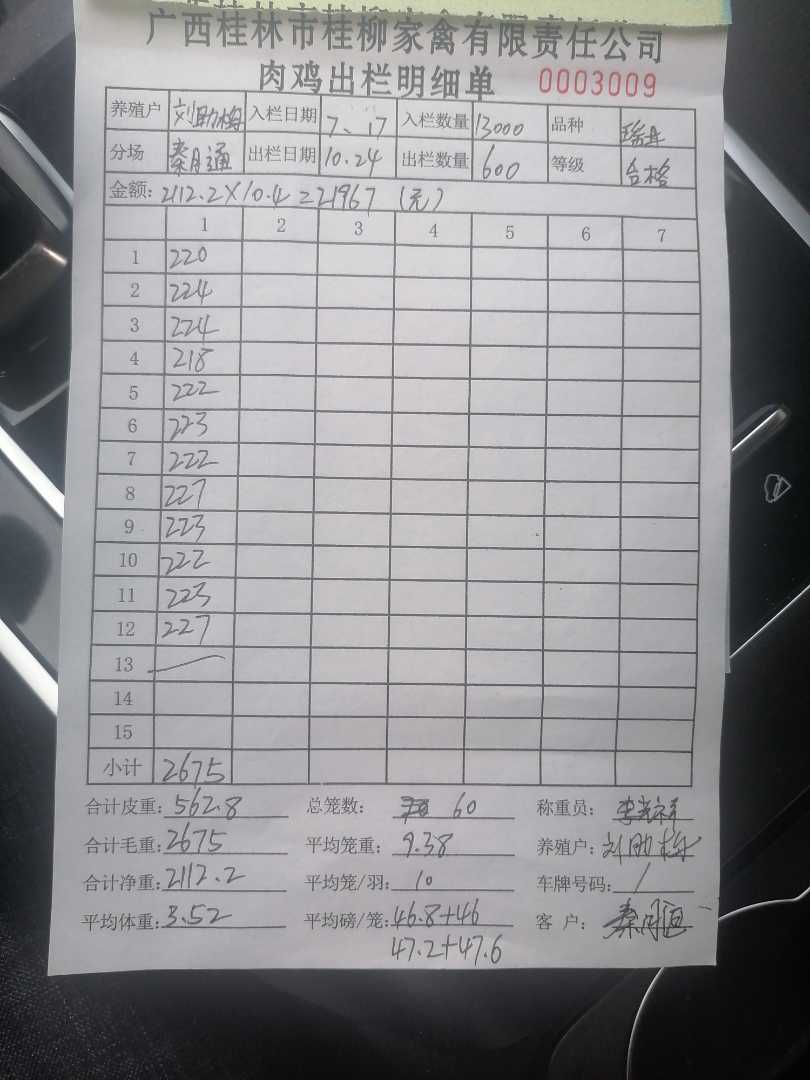 广西桂林市桂柳家禽有限责任公司
肉鸡出栏明细单 0003009
养殖户 刘助梅 入栏日期 7、17 入栏数量 13000 品种
分场 秦月通 出栏日期 10.24 出栏数量 600 等级 合格
金额: 2112.2×10.4=21967 (元)
1 2 3 4 5 6 7
1 220
2 224
3 224
4 218
5 222
6 223
7 222
8 227
9 223
10 222
11 223
12 227
13
14
15
小计 2675
合计皮重: 562.8 总笼数: 60 称重员:
合计毛重: 2675 平均笼重: 9.38 养殖户: 刘助梅
合计净重: 2112.2 平均笼/羽: 10 车牌号码: /
平均体重: 3.52 平均磅/笼: 46.8+46 客户: 秦月通
47.2+47.6